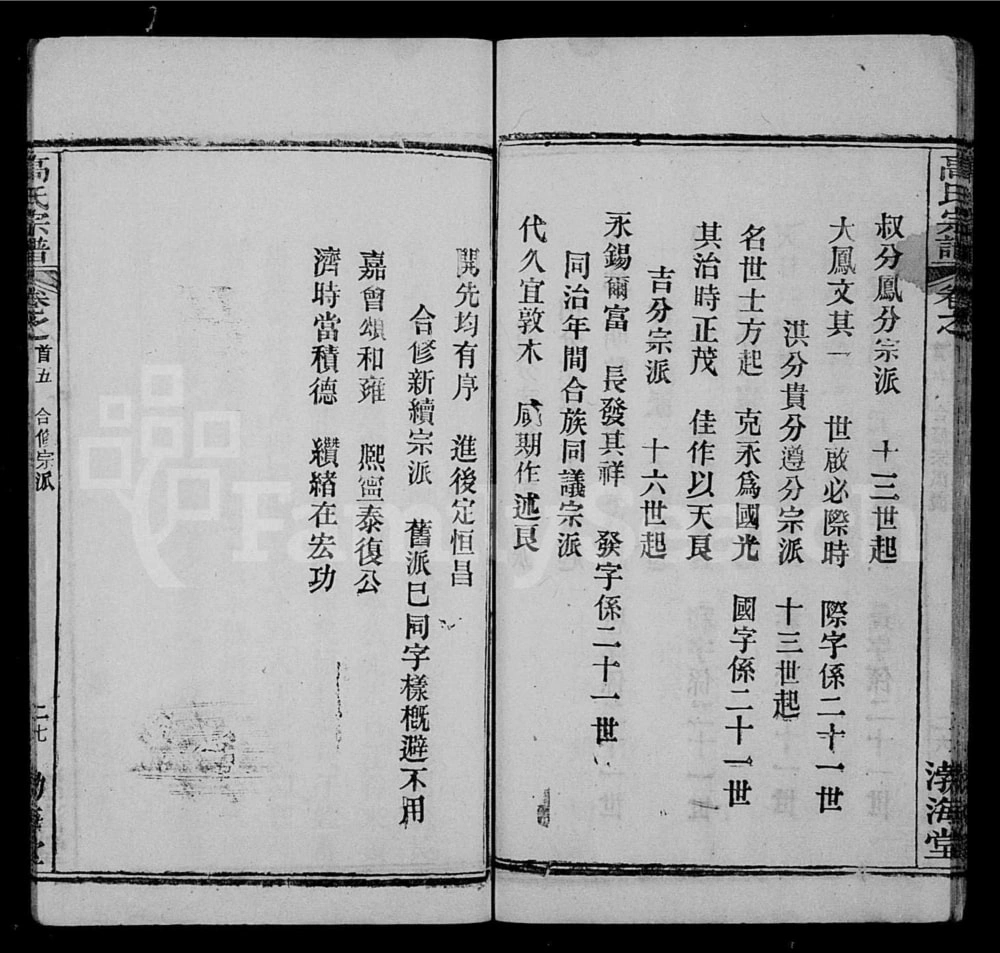 高氏宗譜 卷之
渤海堂
叔分鳳分宗派 十三世起
大鳳文其一 世啟必際時 際字係二十一世
洪分貴分遵分宗派 十三世起
名世士方起 克永為國光 國字係二十一世
其治時正茂 佳作以天良
吉分宗派 十六世起
永錫爾富 長發其祥 發字係二十一世
同治年間合族同議宗派
代久宜敦木 咸期作述良
開先均有序 進後定恒昌
合修新續宗派 舊派已同字樣概避不用
嘉曾頌和雍 熙甯泰復公
濟時當積德 纘緒在宏功
高氏宗譜 卷之首五 合修宗派 二七
FamilySearch